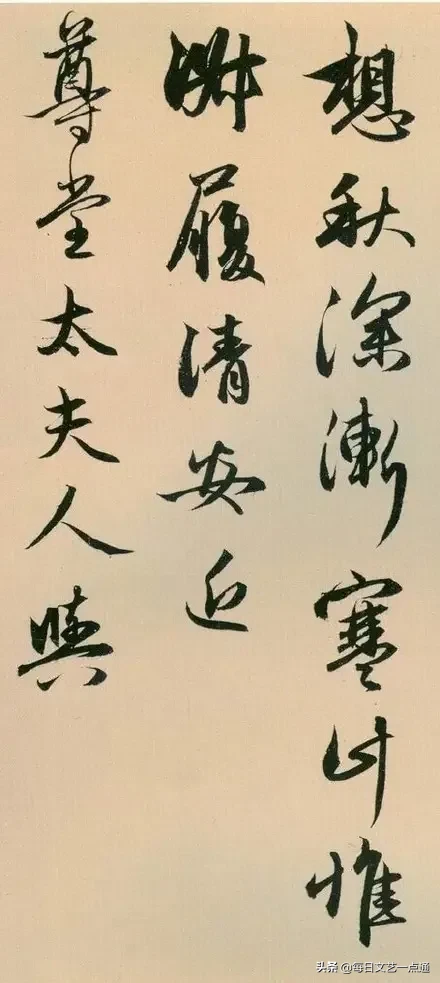 想秋深漸寒計惟
淑履清安近
尊堂太夫人與
头条 @每日文艺一点通